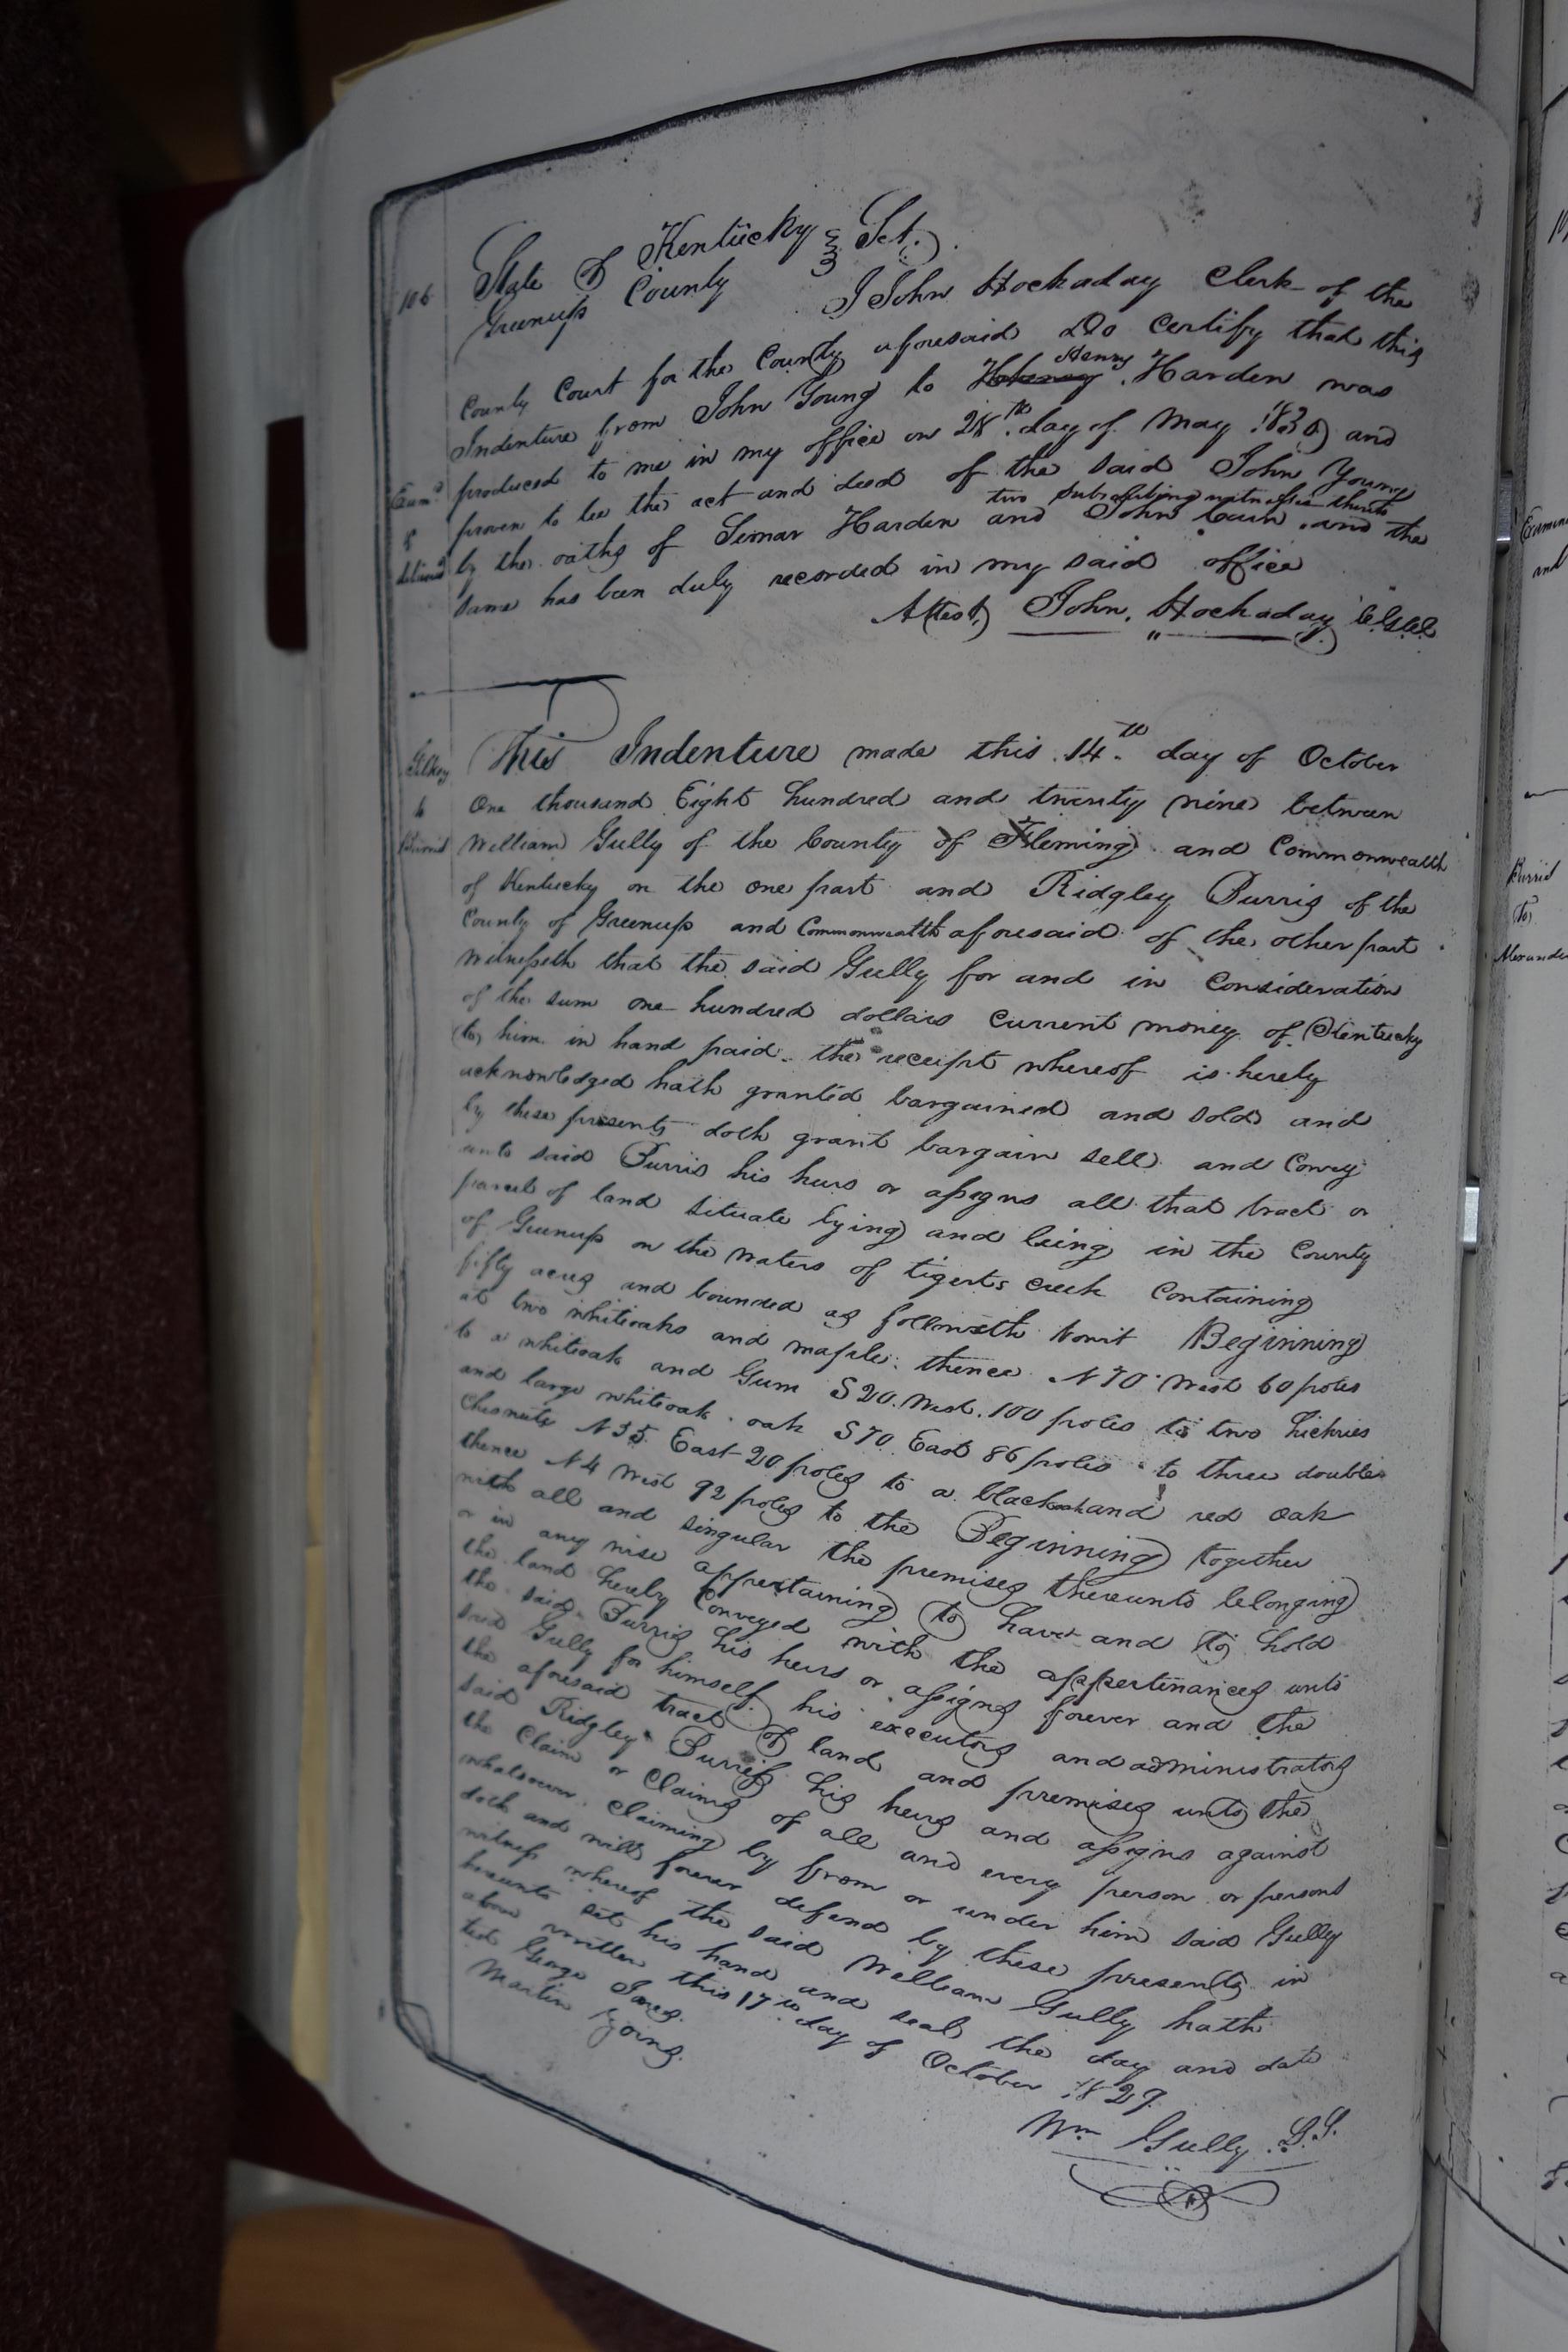 106
State of Kentucky } Sct.
Greenup County
I John Hockaday Clerk of the
County Court for the County aforesaid Do Certify that this
Indenture from John Young to Henry Harden was
produced to me in my office on 28th day of May 1830 and
proven to be the act and deed of the said John Young
two subscribing witnesses thereto
by the oaths of Harden and John and the
same has been duly recorded in my said office
Attest) John Hockaday
Exmd
&
This Indenture made this 14th day of October
One thousand Eight hundred and twenty nine between
William Gully of the County of Fleming and Commonwealth
of Kentucky on the one part and Ridgley Purris of the
County of Greenup and Commonwealth aforesaid of the other part
Witnesseth that the said Gully for and in Consideration
of the sum one hundred dollars Current money of Kentucky
to him in hand paid the receipt whereof is hereby
acknowledged hath granted bargained and sold and
by these presents doth grant bargain sell and Convey
unto said Purris his heirs or assigns all that tract or
parcel of land situate lying and being in the County
of Greenup on the waters of tigerts creek Containing
fifty acres and bounded as followeth towit Beginning
at two whiteoaks and maple thence N 70 West 60 poles
to a whiteoak and Gum S 20. West. 100 poles to two hickries
and large whiteoak oak S 70 East 86 poles to three double
Chesnuts N 35 East 20 poles to a blackoak and red oak
thence N 4 West 92 poles to the Beginning together
with all and singular the premises thereunto belonging
or in any wise appertaining to have and to hold
the land hereby Conveyed with the appertinances unto
the said Purris his heirs or assigns forever and the
said Gully for himself his executors and administrators
the aforesaid tract of land and premises unto the
said Ridgley Purris his heirs and assigns against
the Claim or Claims of all and every person or persons
whatsoever claiming by from or under him said Gully
doth and will forever defend by these presents in
witness whereof the said William Gully hath
hereunto set his hand and seal the day and date
above written this 17th day of October 1829.
test George
Martin
Wm Gully